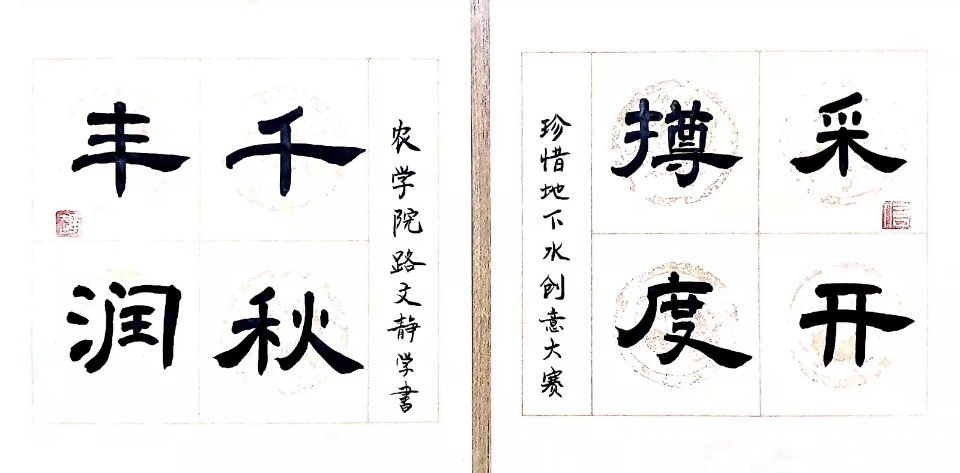 采开
撙度
珍惜地下水创意大赛
农学院路文静学书
千秋
丰润